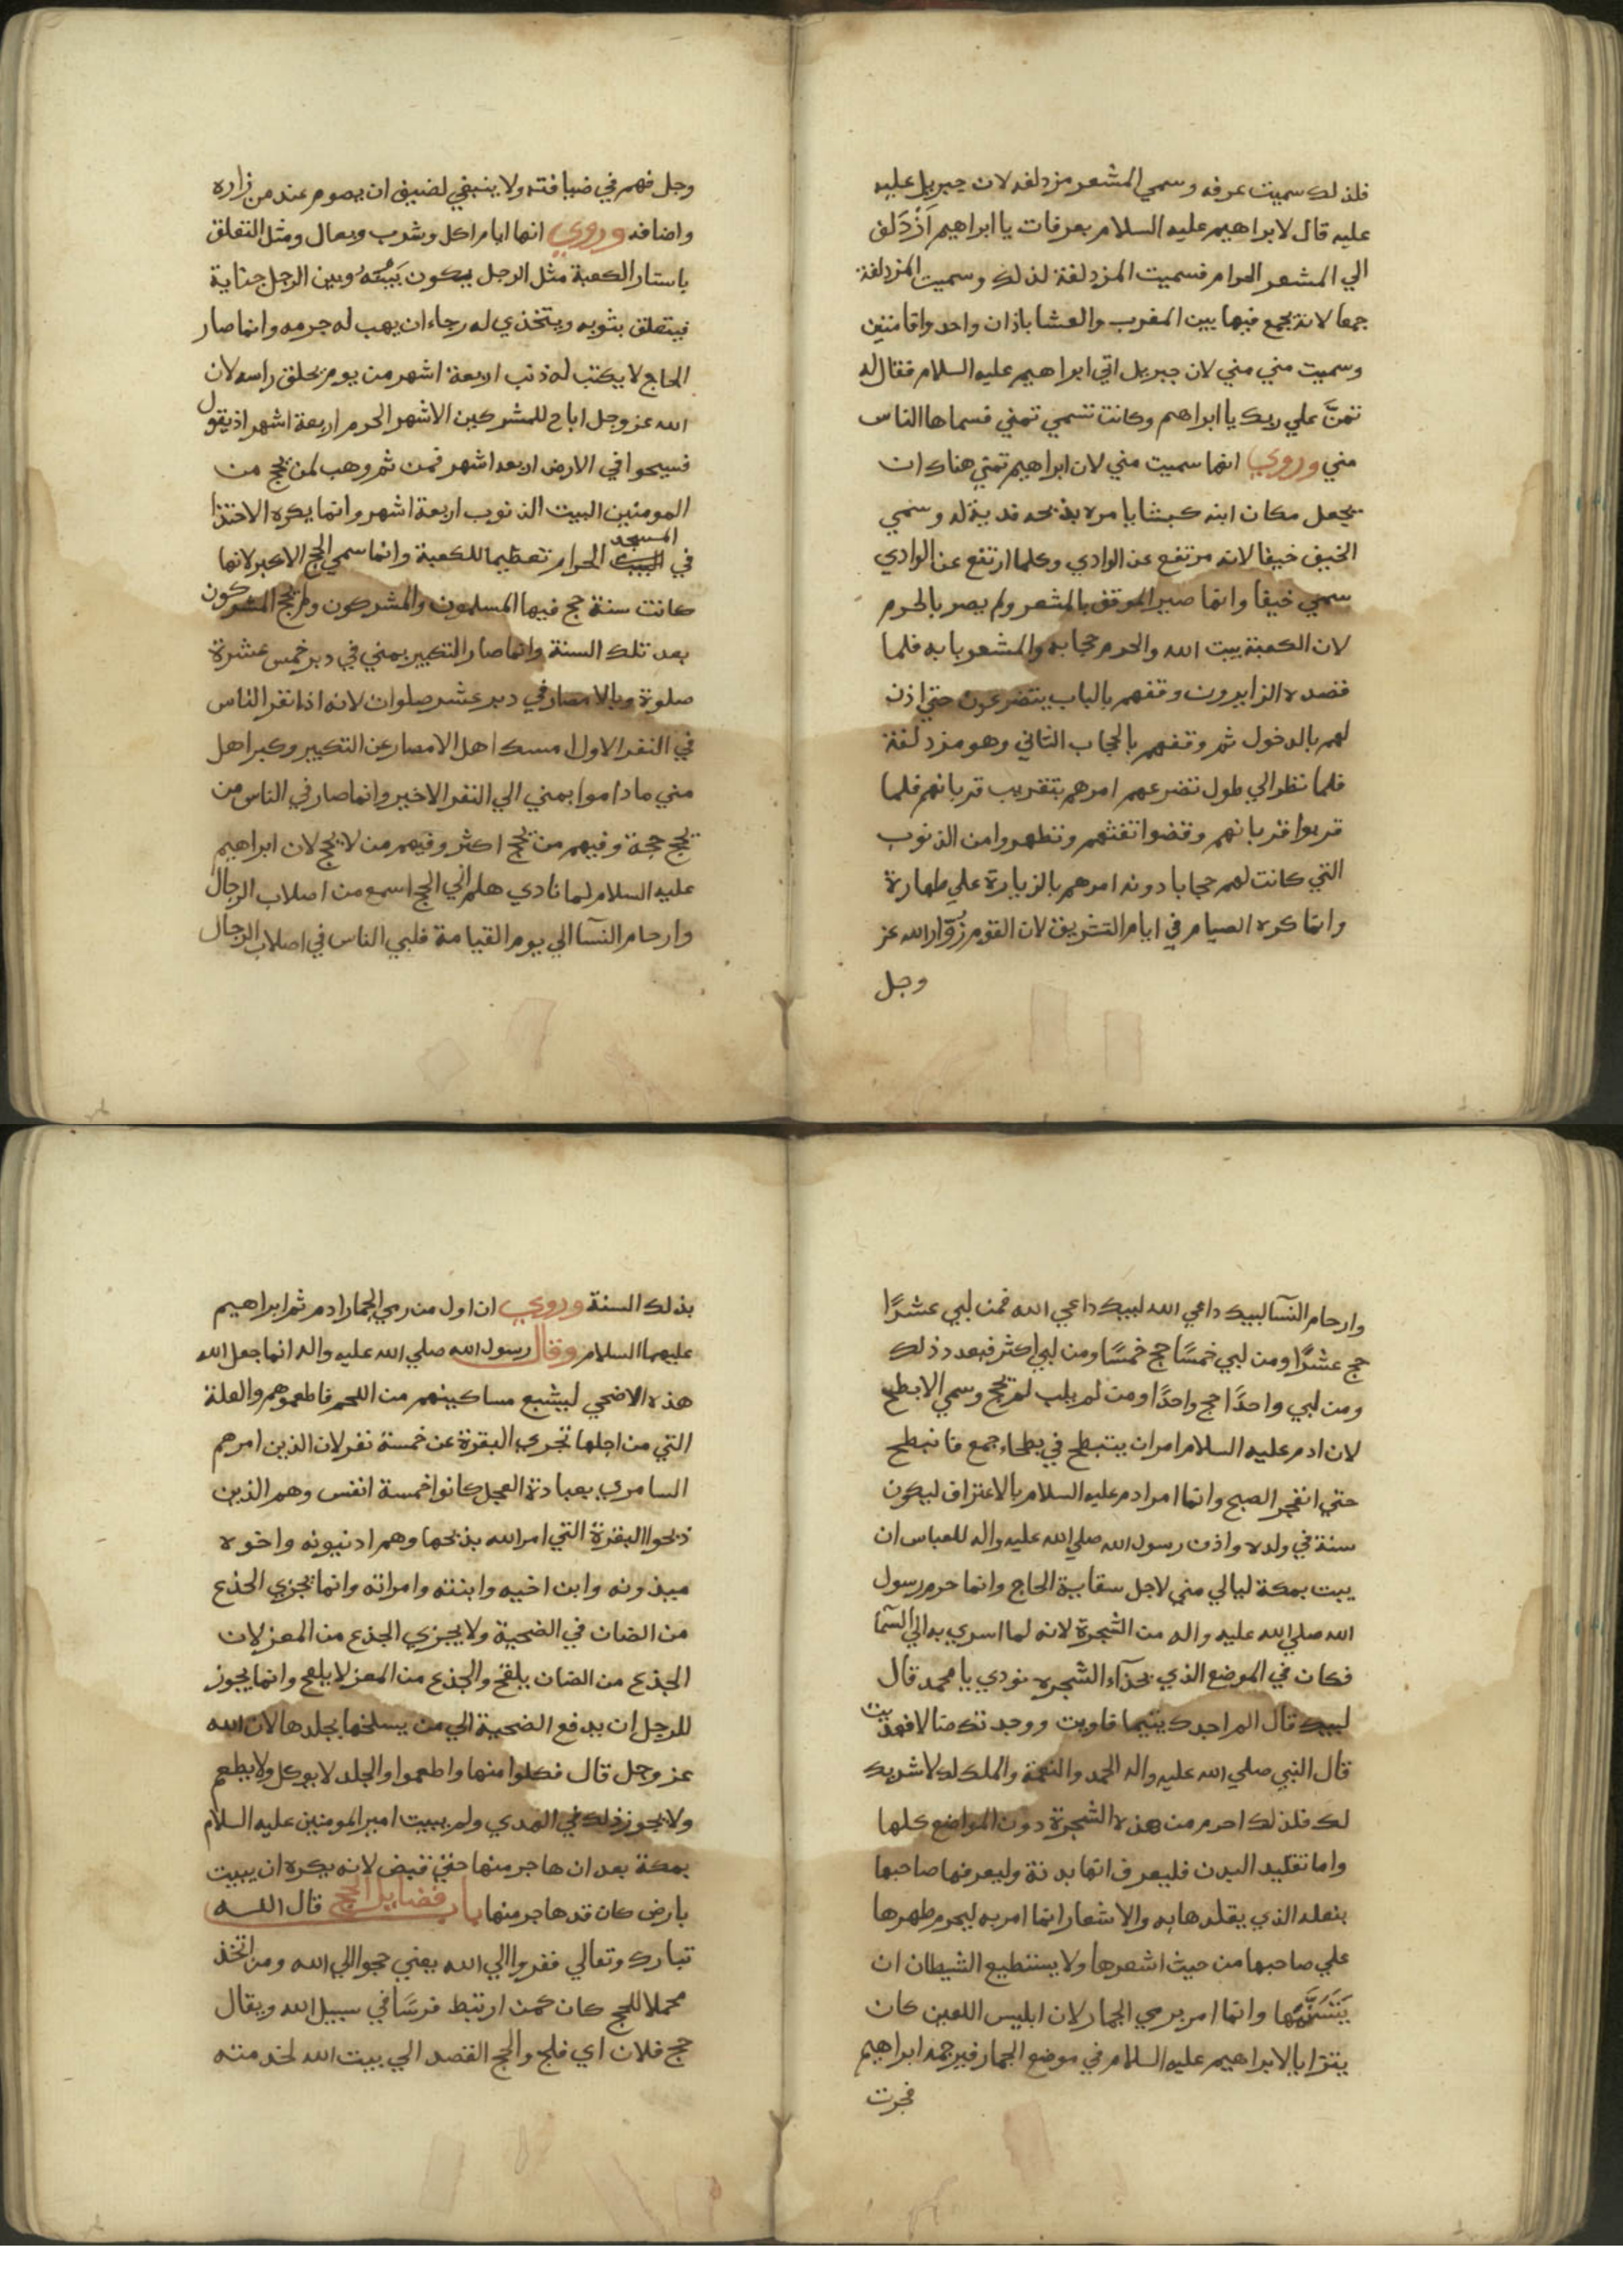 فلذلك سميت عرفه وسمي المشعر مزدلفه لان جبريل عليه
عليه قال لابراهيم عليه السلام بعرفات يا ابراهيم اَزْدَلف
الي المشعر الحرام فسميت المزدلفة لذلك وسميت المزدلفة
جمعا لانه يجمع فيها بين المغرب والعشا باذان واحد واقامتين
وسميت مني مني لان جبريل اتي ابراهيم عليه السلام فقال له
تمنَّ علي ربك يا ابراهم وكانت تسمي تمني فسماها الناس
مني وروي انها سميت مني لان ابراهيم تمني هناك ان
يجعل مكان ابنه كبشا يامره بذبحه فدية له وسمي
الخيف خيفا لانه مرتفع عن الوادي وكلما ارتفع عن الوادي
سمي خيفا وانما صير الموقف بالمشعر ولم يصر بالحرم
لان الكعبة بيت الله والحرم حجابه والمشعر بابه فلما
قصده الزايرون وقفهم بالباب يتضرعون حتي اذن
لهم بالدخول ثم وقفهم بالحجاب الثاني وهو مزدلفة
فلما نظر الي طول تضرعهم امرهم بتقريب قربانهم فلما
قربوا قربانهم وقضوا تفثهم وتطهروا من الذنوب
التي كانت لهم حجابا دونه امرهم بالزيارة علي طهارة
وانما كره الصيام في ايام التشريق لان القوم زُوّار الله عز
وجل
وجل فهم في ضيافته ولا ينبغي لضيف ان يصوم عند من زاره
واضافه وروي انها ايام اكل وشرب وبعال ومثل التعلق
باستار الكعبة مثل الرجل يكون بَيْنَهُ وبين الرجل جناية
فيتعلق بثوبه ويتخذي له رجاء ان يهب له جرمه وانما صار
الحاج لا يكتب له ذنب اربعة اشهر من يوم يحلق راسه لان
الله عز وجل اباح للمشركين الاشهر الحرم اربعة اشهر اذ يقول
فسيحوا في الارض اربعه اشهر فمن ثم وهب لمن يحج من
المومنين البيت الذنوب اربعة اشهر وانما يكره الاحتذا
في المسجد الحرام تعظيما للكعبة وانما سمي الحج الاكبر لانها
كانت سنة حج فيها المسلمون والمشركون ولم يحج المشركون
بعد تلك السنة وانما صار التكبير بمني في دبر خمس عشرة
صلوة وبالامصار في دبر عشر صلوات لانه اذا نفر الناس
في النفر الاول امسك اهل الامصار عن التكبير وكبر اهل
مني ما داموا بمني الي النفر الاخير وانما صار في الناس من
يحج حجة وفيهم من يحج اكثر وفيهم من لا يحج لان ابراهيم
عليه السلام لما نادي هلم الي الحج اسمع من اصلاب الرجال
وارحام النسآ الي يوم القيامة فلبي الناس في اصلاب الرجال
وارحام النسآ لبيك داعي الله لبيك داعي الله فمن لبي عشرًا
حج عشرًا ومن لبي خمسًا حج خمسًا ومن لبي اكثر فبعدد ذلك
ومن لبي واحدًا حج واحدًا ومن لم يلب لم يحج وسمي الابطح
لان ادم عليه السلام امر ان يتبطح في بطحاء جمع فانبطح
حتي انفجر الصبح وانما امر ادم عليه السلام بالاعتراف ليكون
سنة في ولده واذن رسول الله صلي الله عليه واله للعباس ان
يبت بمكة ليالي مني لاجل سقاية الحاج وانما حرم رسول
الله صلي الله عليه واله من الشجرة لانه لما اسري به الي السّمآ
فكان في الموضع الذي بحذآء الشجره نودي يا محمد قال
لبيك قال الم اجدك يتيما فاويت ووجدتك ضالا فهديت
قال النبي صلي الله عليه واله الحمد والنعمة والملك لك لا شريك
لك فلذلك احرم من هذه الشجرة دون المواضع كلها
واما تقليد البدن فليعرف انها بدنة وليعرفها صاحبها
بنعله الذي يقلدها به والاشعار انما امر به ليحرم ظهرها
علي صاحبها من حيث اشعرها ولا يستطيع الشيطان ان
يَتَسَنَّمَها وانما امر برمي الجمار لان ابليس اللعين كان
يتزايا لابراهيم عليه السلام في موضع الجمار فيرجمه ابراهيم
فجرت
بذلك السنة وروي ان اول من رمي الجمار ادم ثم ابراهيم
عليهما السلام وقال رسول الله صلي الله عليه واله انما جعل الله
هذه الاضحي ليشبع مساكينهم من اللحم فاطعموهم والعلة
التي من اجلها تجري البقرة عن خمسة نفر لان الذين امرهم
السامري بعبادة العجل كانوا خمسة انفس وهم الذين
ذبحوا البقرة التي امر الله بذبحها وهم ادنيونه واخوه
ميذونه وابن اخيه وابنته وامراته وانما يجزي الجذع
من الضان في الضحية ولا يجزي الجذع من المعز لان
الجذع من الضان يلقح والجذع من المعز لا يلقح وانما يجوز
للرجل ان يدفع الضحية الي من يسلخها بجلدها لان الله
عز وجل قال فكلوا منها واطعموا والجلد لا يوكل ولا يطعم
ولا يجوز ذلك في الهدي ولم يبيت امير المومنين عليه السلام
بمكة بعد ان هاجر منها حتي قبض لانه يكره ان يبيت
بارض كان قد هاجر منها باب فضايل الحج قال الله
تبارك وتعالي ففروا الي الله يعني حجوا الي الله ومن اتخذ
محملا للحج كان كمن ارتبط فرسًا في سبيل الله ويقال
حج فلان اي فلج والحج القصد الي بيت الله لخدمته